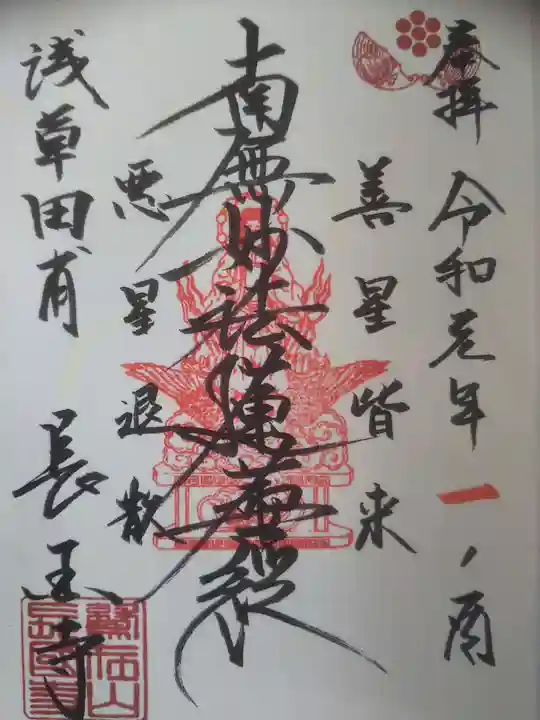 奉拝 令和元年 一ノ酉
善星皆来
南無妙法蓮華経
悪星退散
浅草田甫 長国寺
鷲在山長國寺